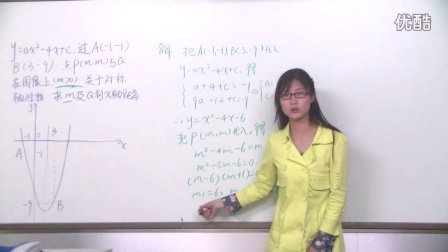 优酷
y=ax²-4x+c,过A(-1,-1)
B(3,-9) 点P(m,m)与Q
在图像上(m>0)关于对称
轴对称 求m及Q到x轴的距离
y
-1 0 3
x
A -1
-9 B
解 把A(-1,-1)B(3,-9)代入
y=ax²-4x+c,得
a+4+c=-1
9a-12+c=-9
∴y=x²-4x-6
把P(m,m)代入,得
m²-4m-6=m
m²-5m-6=0
(m-6)(m+1)=0
m₁=6,